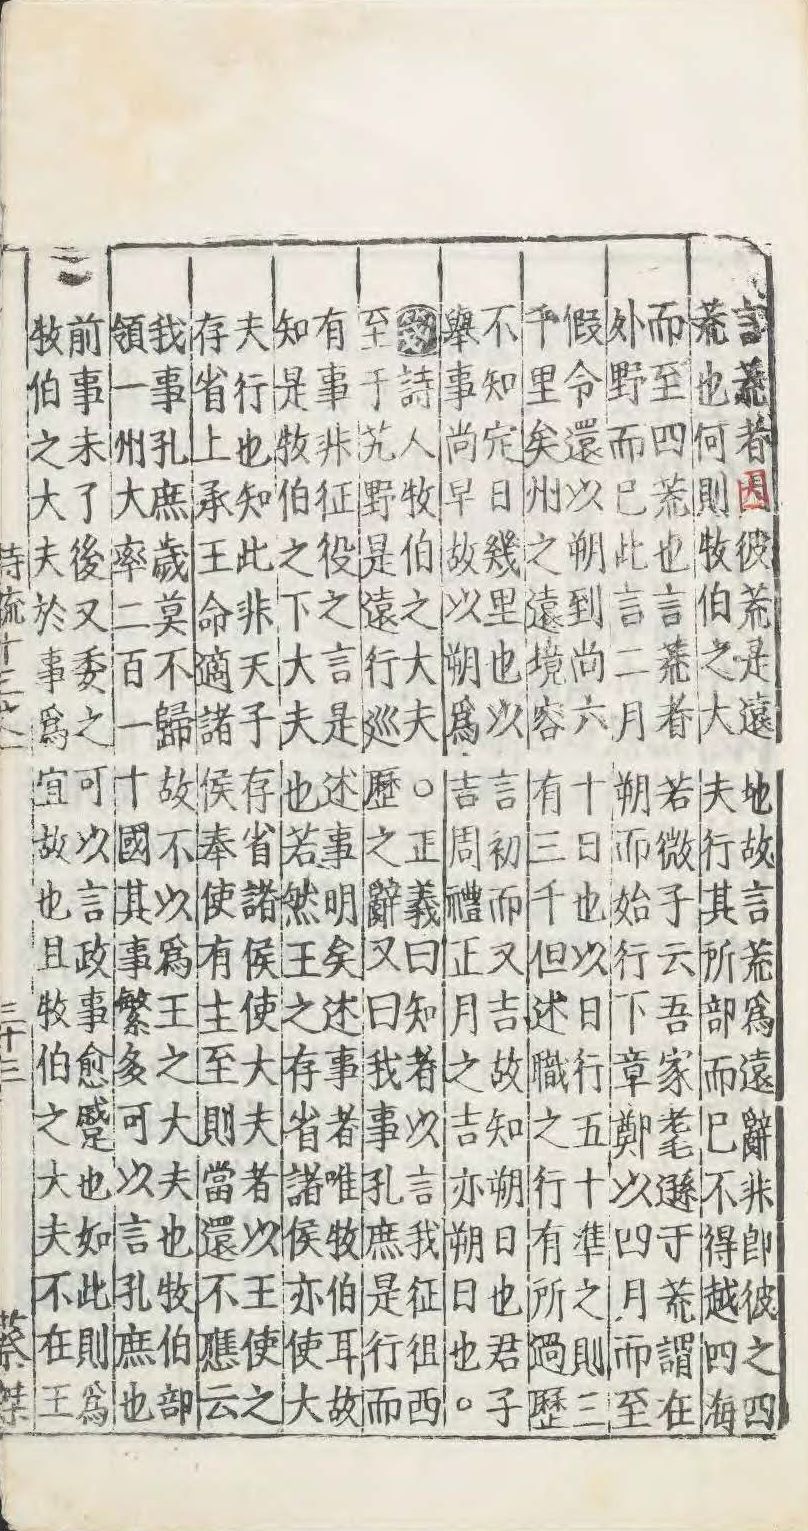 言荒者因彼荒是遠地故言荒爲遠辭非即彼之四
荒也何則牧伯之大夫行其所部而巳不得越四海
而至四荒也言荒者若微子云吾家耄遜于荒謂在
外野而巳此言二月朔而始行下章鄭以四月而至
假令還以朔到尚六十日也以日行五十準之則三
千里矣州之遠境容有三千但述職之行有所過歷
不知定日幾里也以言初而又吉故知朔日也君子
舉事尚早故以朔爲吉周禮正月之吉亦朔日也○
箋詩人牧伯之大夫○正義曰知者以言我征徂西
至于艽野是遠行巡歷之辭又曰我事孔庶是行而
有事非征役之言是述事明矣述事者唯牧伯耳故
知是牧伯之下大夫也若然王之存省諸侯亦使大
夫行也知此非天子存省諸侯使大夫者以王使之
存省上承王命適諸侯奉使有主至則當還不應云
我事孔庶歲莫不歸故不以爲王之大夫也牧伯部
領一州大率二百一十國其事繁多可以言孔庶也
前事未了後又委之可以言政事愈蹙也如此則爲
牧伯之大夫於事爲宜故也且牧伯之大夫不在王
詩疏十三之一
三十三
蔡傑